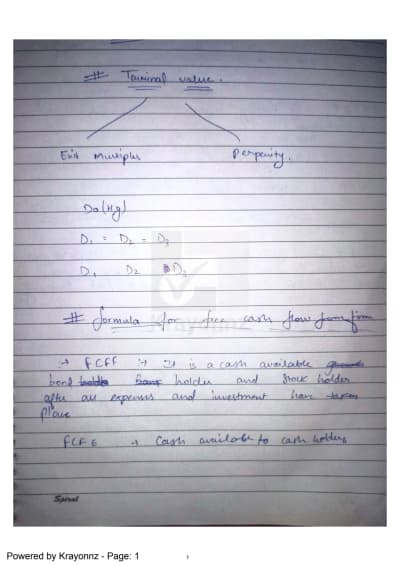 # Tarminal value.
Exit multiples
Perpenity.
Do(Hg)
D1 = D2 = D3
D1 D2 D3
Krayonnz
# formula for free cash flow from firm
→ FCFF :→ It is a cash available
bond holder and stock holder
after all expenses and investment have taken
place
FCFE → Cash available to cash holders
Spiral
Powered by Krayonnz - Page: 1
1